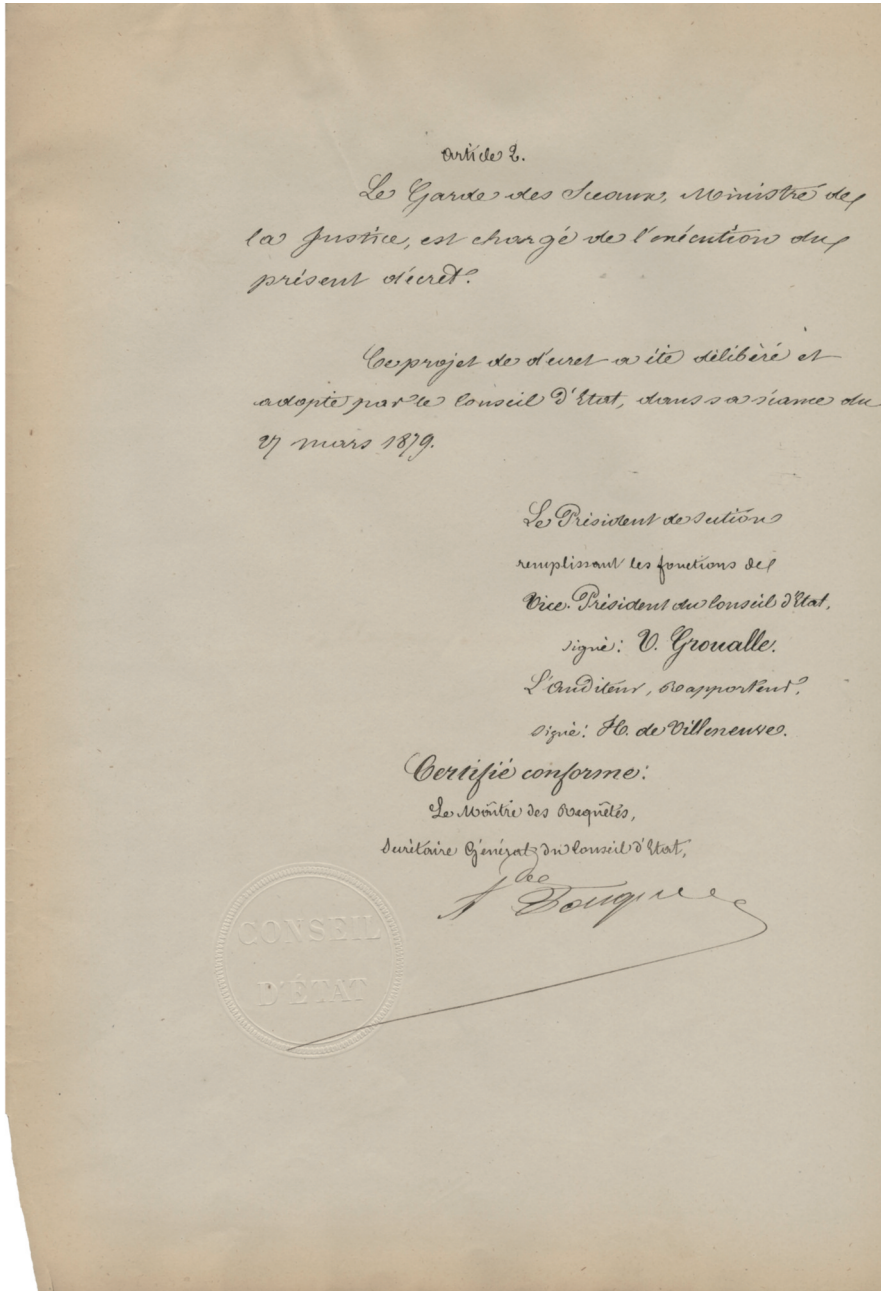 article 2.
Le Garde des Sceaux, Ministre de
la Justice, est chargé de l'exécution du
présent décret.
Ce projet de décret a été délibéré et
adopté par le Conseil d'Etat, dans sa séance du
27 mars 1879.
Le Président de Section
remplissant les fonctions de
Vice-Président du Conseil d'Etat,
signé: V. Groualle.
L'Auditeur, Rapporteur,
signé: H. de Villeneuve.
Certifié conforme:
Le Maître des Requêtes,
Secrétaire Général du Conseil d'Etat,
CONSEIL
D'ÉTAT